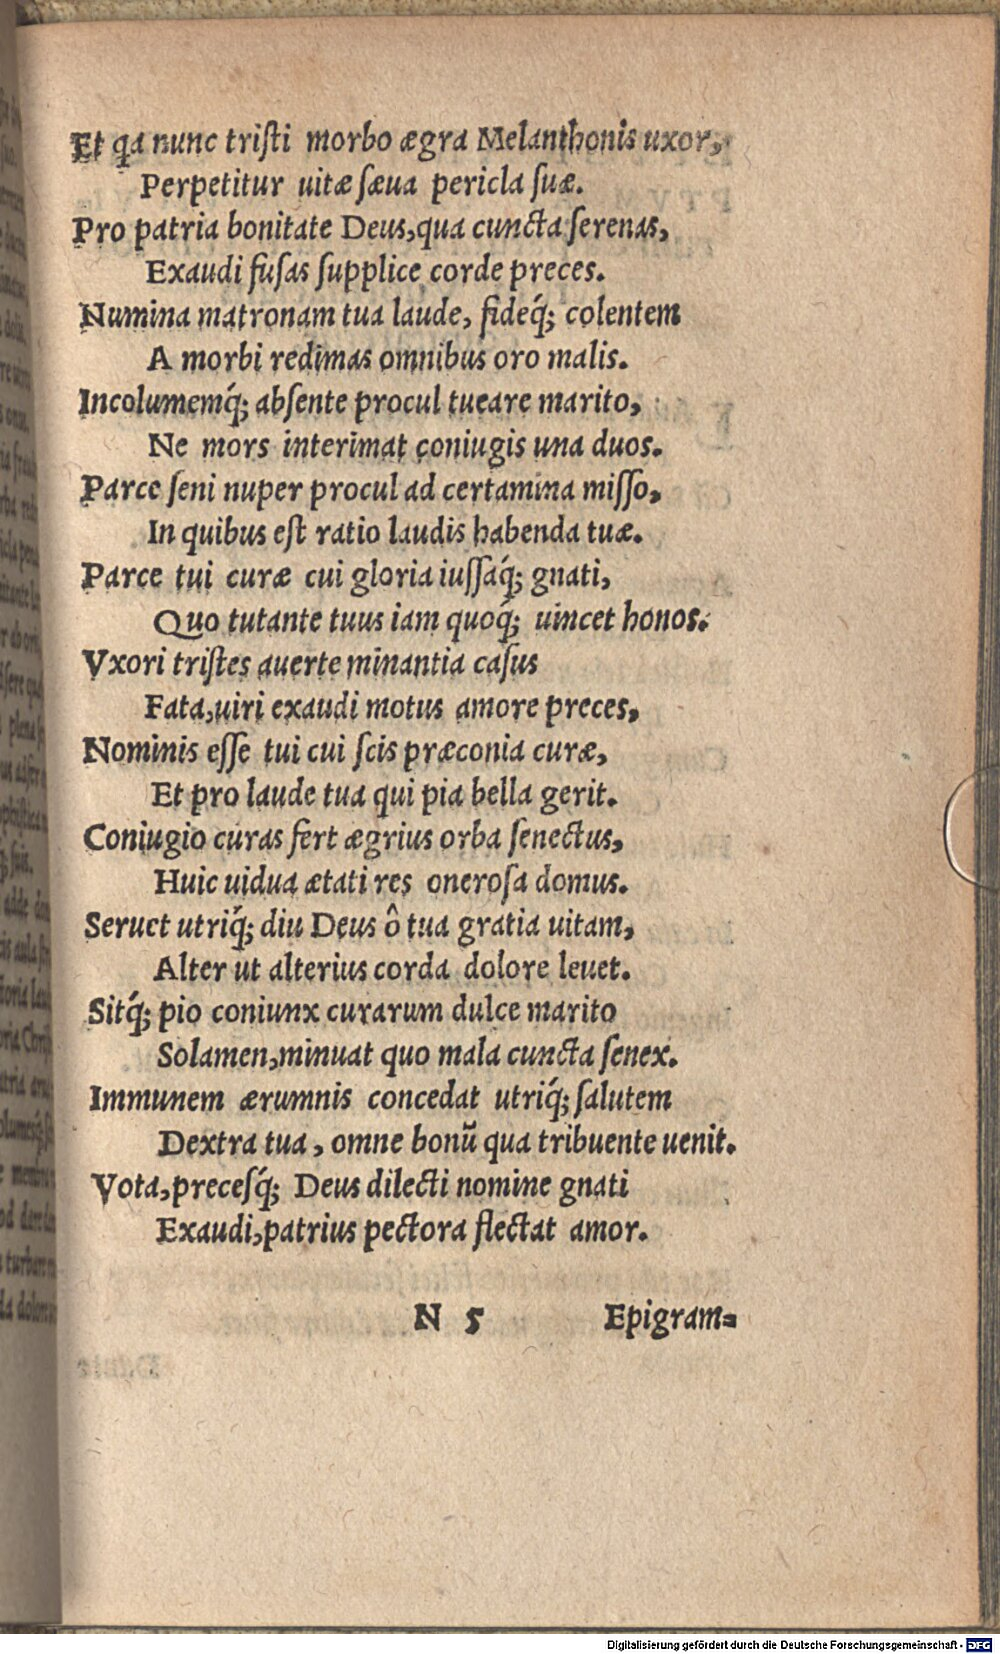 Et qa nunc tristi morbo ægra Melanthonis uxor,
Perpetitur uitæ sæua pericla suæ.
Pro patria bonitate Deus, qua cuncta serenas,
Exaudi fusas supplice corde preces.
Numina matronam tua laude, fideq́; colentem
A morbi redimas omnibus oro malis.
Incolumemq́; absente procul tueare marito,
Ne mors interimat coniugis una duos.
Parce seni nuper procul ad certamina misso,
In quibus est ratio laudis habenda tuæ.
Parce tui curæ cui gloria iussaq́; gnati,
Quo tutante tuus iam quoq́; uincet honos.
Vxori tristes auerte minantia casus
Fata, uiri exaudi motus amore preces,
Nominis esse tui cui scis præconia curæ,
Et pro laude tua qui pia bella gerit.
Coniugio curas fert ægrius orba senectus,
Huic uidua ætati res onerosa domus.
Seruet utriq́; diu Deus ô tua gratia uitam,
Alter ut alterius corda dolore leuet.
Sitq́; pio coniunx curarum dulce marito
Solamen, minuat quo mala cuncta senex.
Immunem ærumnis concedat utriq́; salutem
Dextra tua, omne bonũ qua tribuente uenit.
Vota, precesq́; Deus dilecti nomine gnati
Exaudi, patrius pectora flectat amor.
N 5 Epigram-
Digitalisierung gefördert durch die Deutsche Forschungsgemeinschaft - DFG